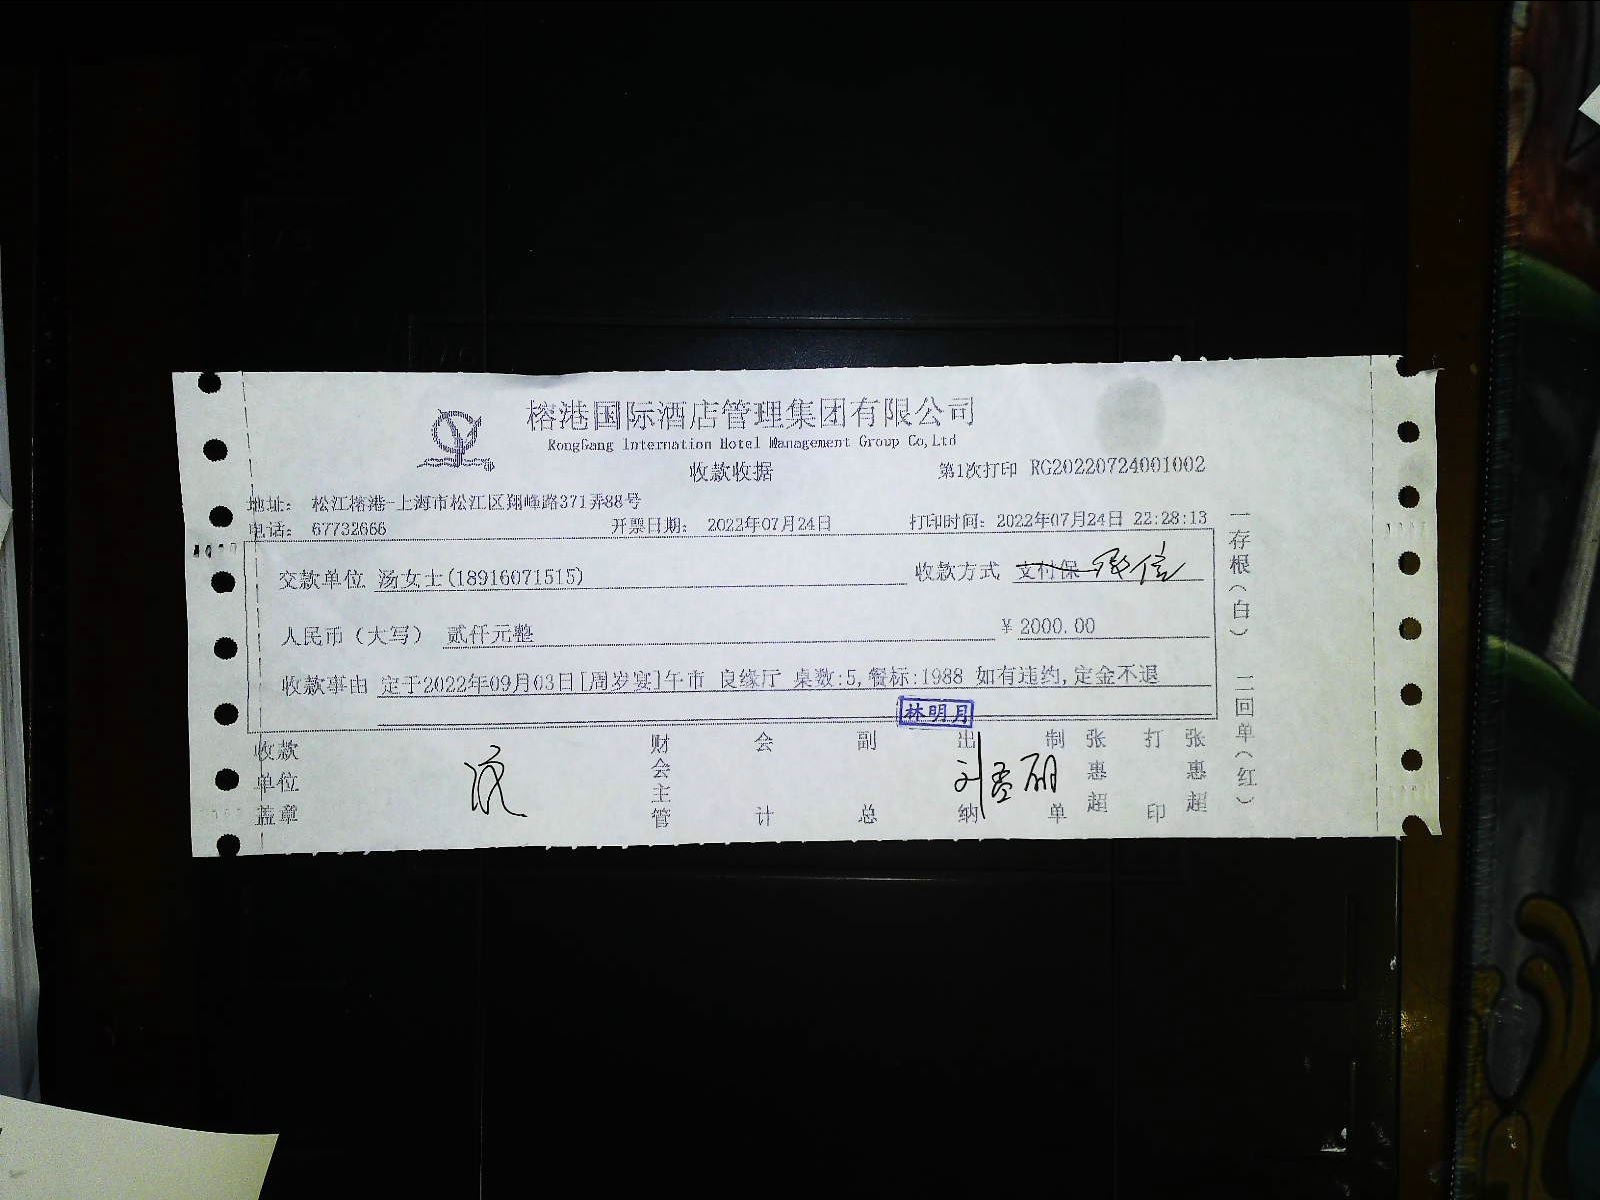 榕港国际酒店管理集团有限公司
RongGang Internation Hotel Management Group Co,Ltd
收款收据
第1次打印 RG20220724001002
地址： 松江榕港-上海市松江区翔峰路371弄88号
电话： 67732666 开票日期： 2022年07月24日 打印时间：2022年07月24日 22:28:13
交款单位 汤女士(18916071515) 收款方式 支付保 微信
人民币（大写） 贰仟元整 ￥2000.00
收款事由 定于2022年09月03日[周岁宴]午市 良缘厅 桌数:5,餐标:1988 如有违约,定金不退
林明月
收款单位盖章
财会主管
会计
副总
出纳
制单 张惠超
打印 张惠超
一存根（白）
二回单（红）